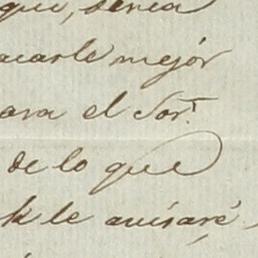 que, seria
acarle mejór
ara el Sor.
de lo que
k le avisaré